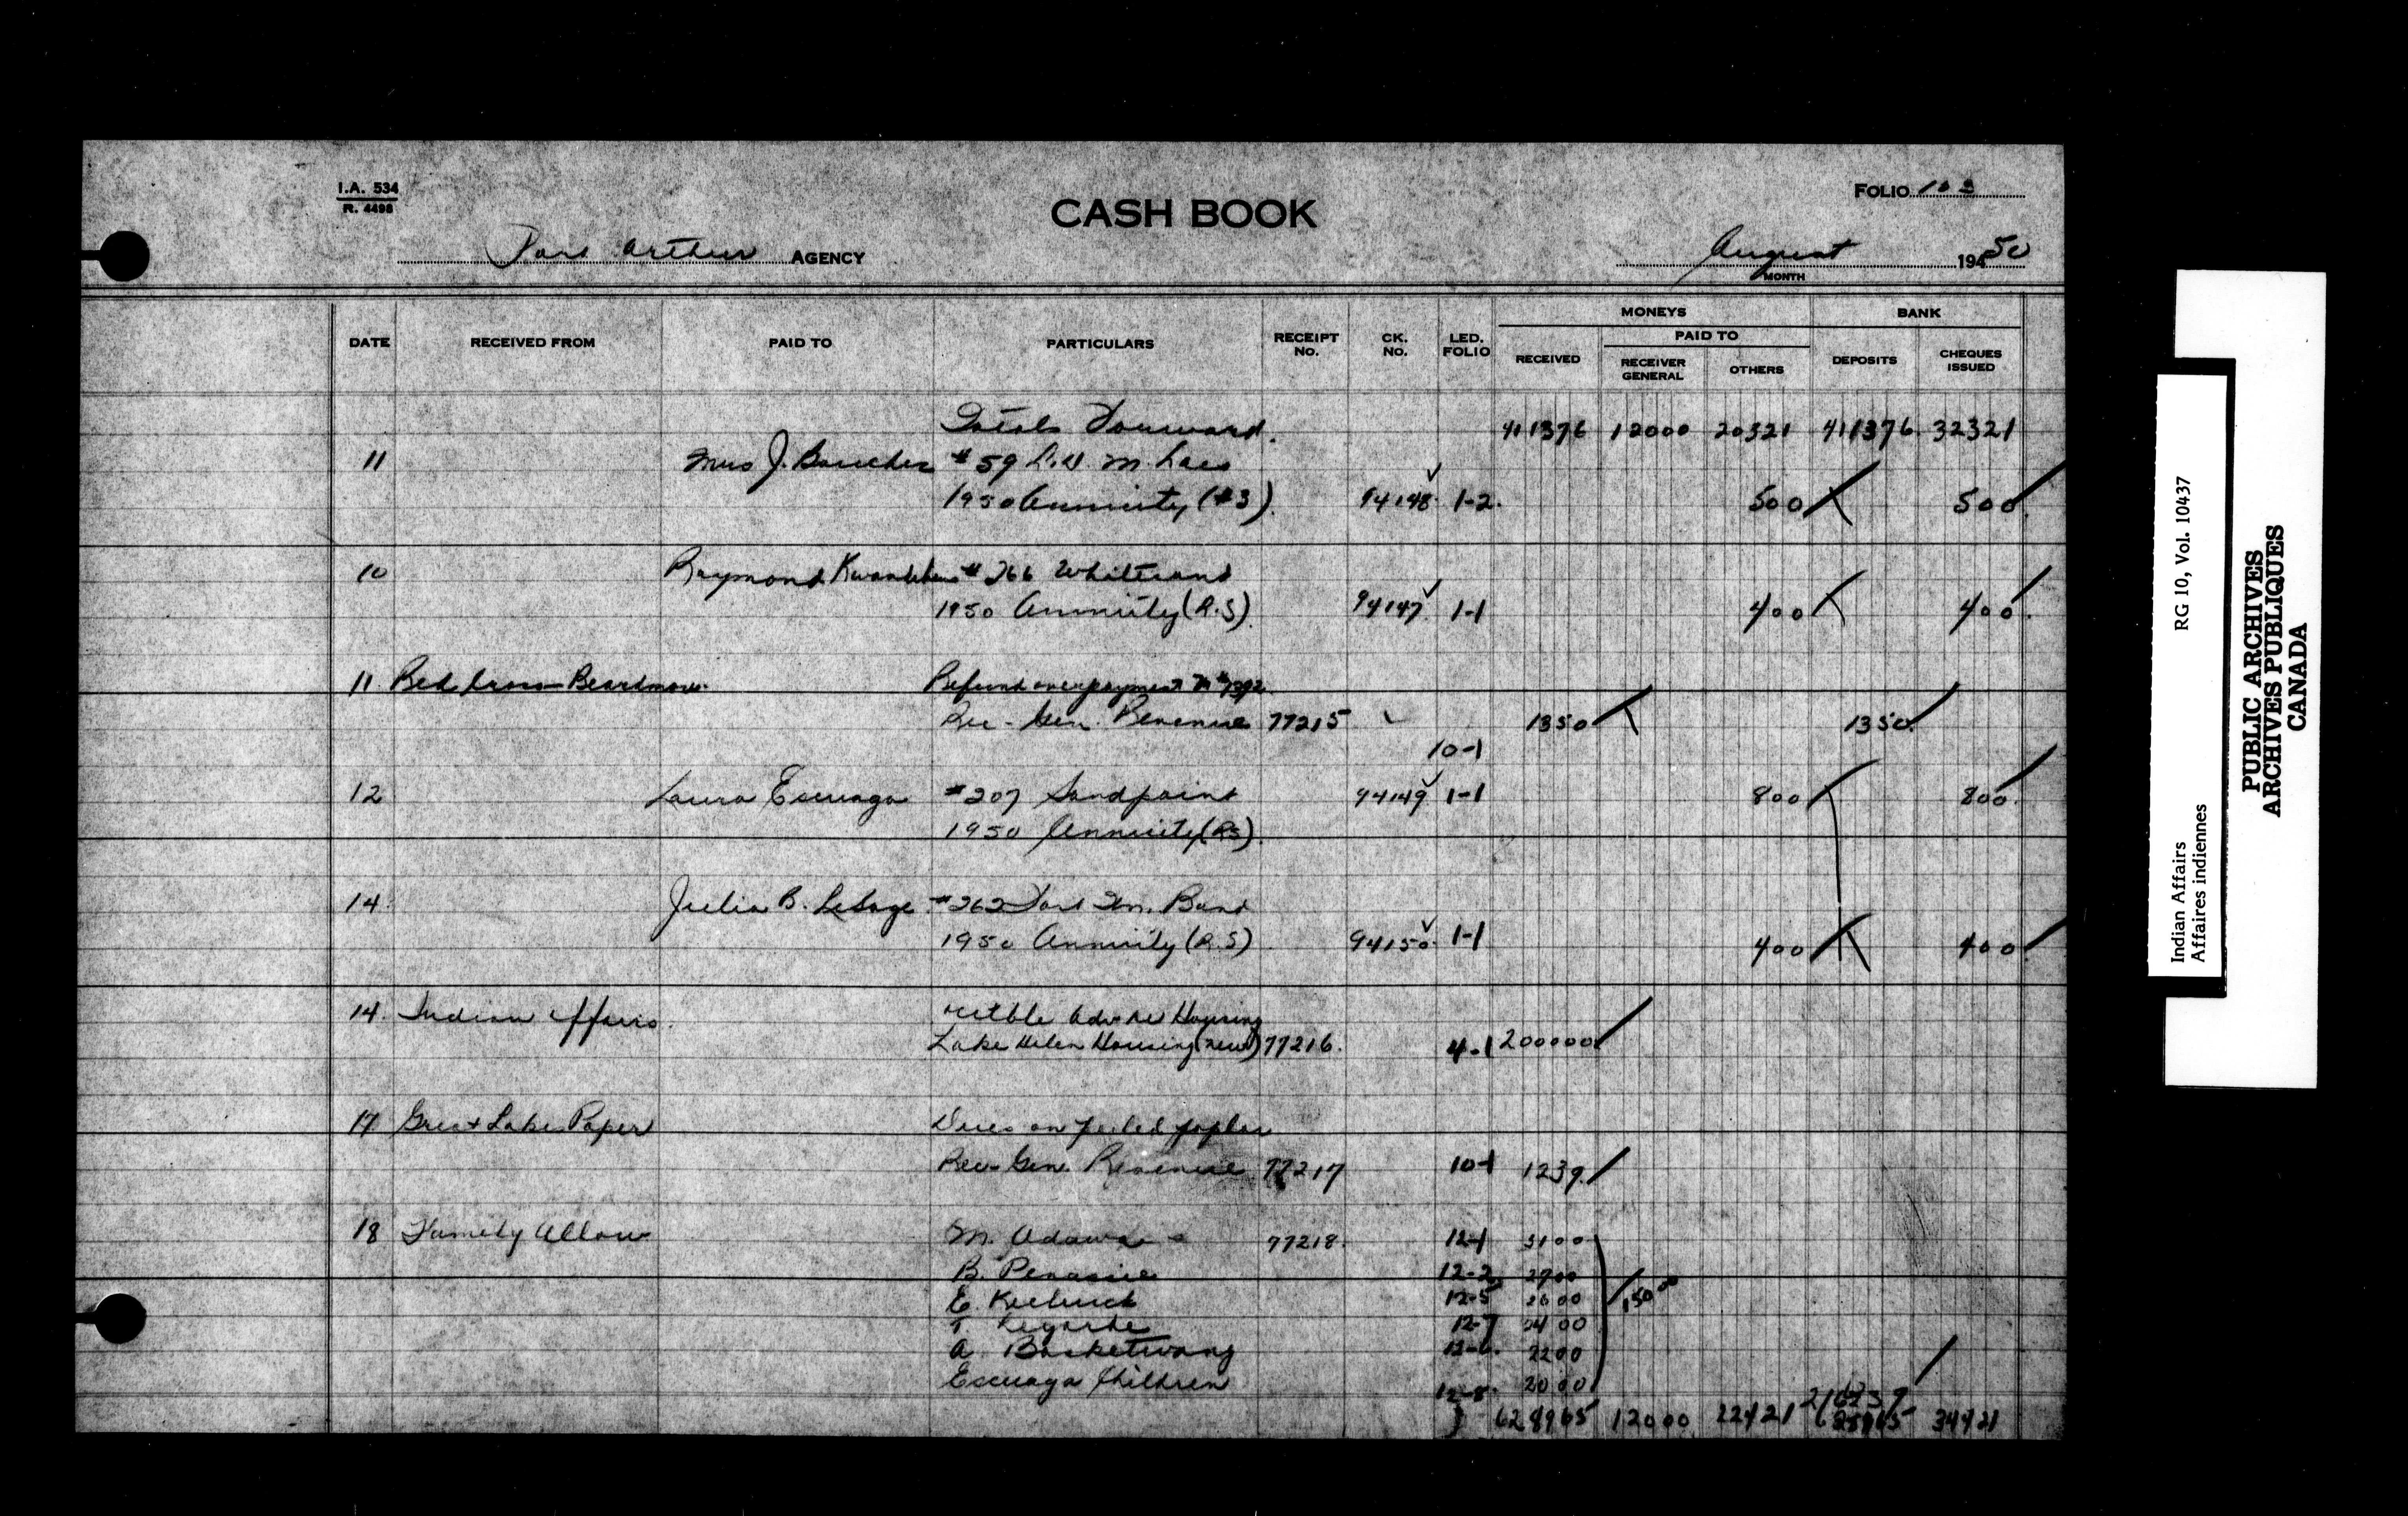 I.A. 534
R. 4498
CASH BOOK
FOLIO 103
Port Arthur AGENCY
August MONTH 194 50
MONEYS BANK
PAID TO
DATE RECEIVED FROM PAID TO PARTICULARS RECEIPT No. CK. No. LED. FOLIO RECEIVED RECEIVER GENERAL OTHERS DEPOSITS CHEQUES ISSUED
Totals Forward. 411376 12000 20321 411376 32321
11 Mrs J. Boucher #59 L.D. M. Lacs
1950 Annuity (#3). 94148 1-2. 500 500.
10 Raymond #266 Whitesand
1950 Annuity (R.S). 94147 1-1 400 400.
11 Red Cross Beardmore. Refund overpayment
Rec-Gen. Revenue 77215 1350 1350.
10-1
12 Laura Esquaga #207 Sandpoint 94149 1-1 800 800.
1950 Annuity (RS).
14. Julia B. LeSage #262 Fort Wm. Band
1950 Annuity (R.S) 94150. 1-1 400 400
14. Indian Affairs. Housing
Lake Helen Housing (new) 77216. 4-1 200000
17 Great Lakes Paper Dues on peeled poplar
Rec-Gen. Revenue 77217 10-1 1239.
18 Family Allow M. 77218. 12-1 3100
B. Penassie 12-2 2700
E. 12-5 2600 150 00
T. Legarde 12-7 2400
A. Basketwang 12-6. 2200
Esquaga Children 12-8. 2000
628965 12000 22421 34421
Indian Affairs RG 10, Vol. 10437
Affaires indiennes
PUBLIC ARCHIVES
ARCHIVES PUBLIQUES
CANADA